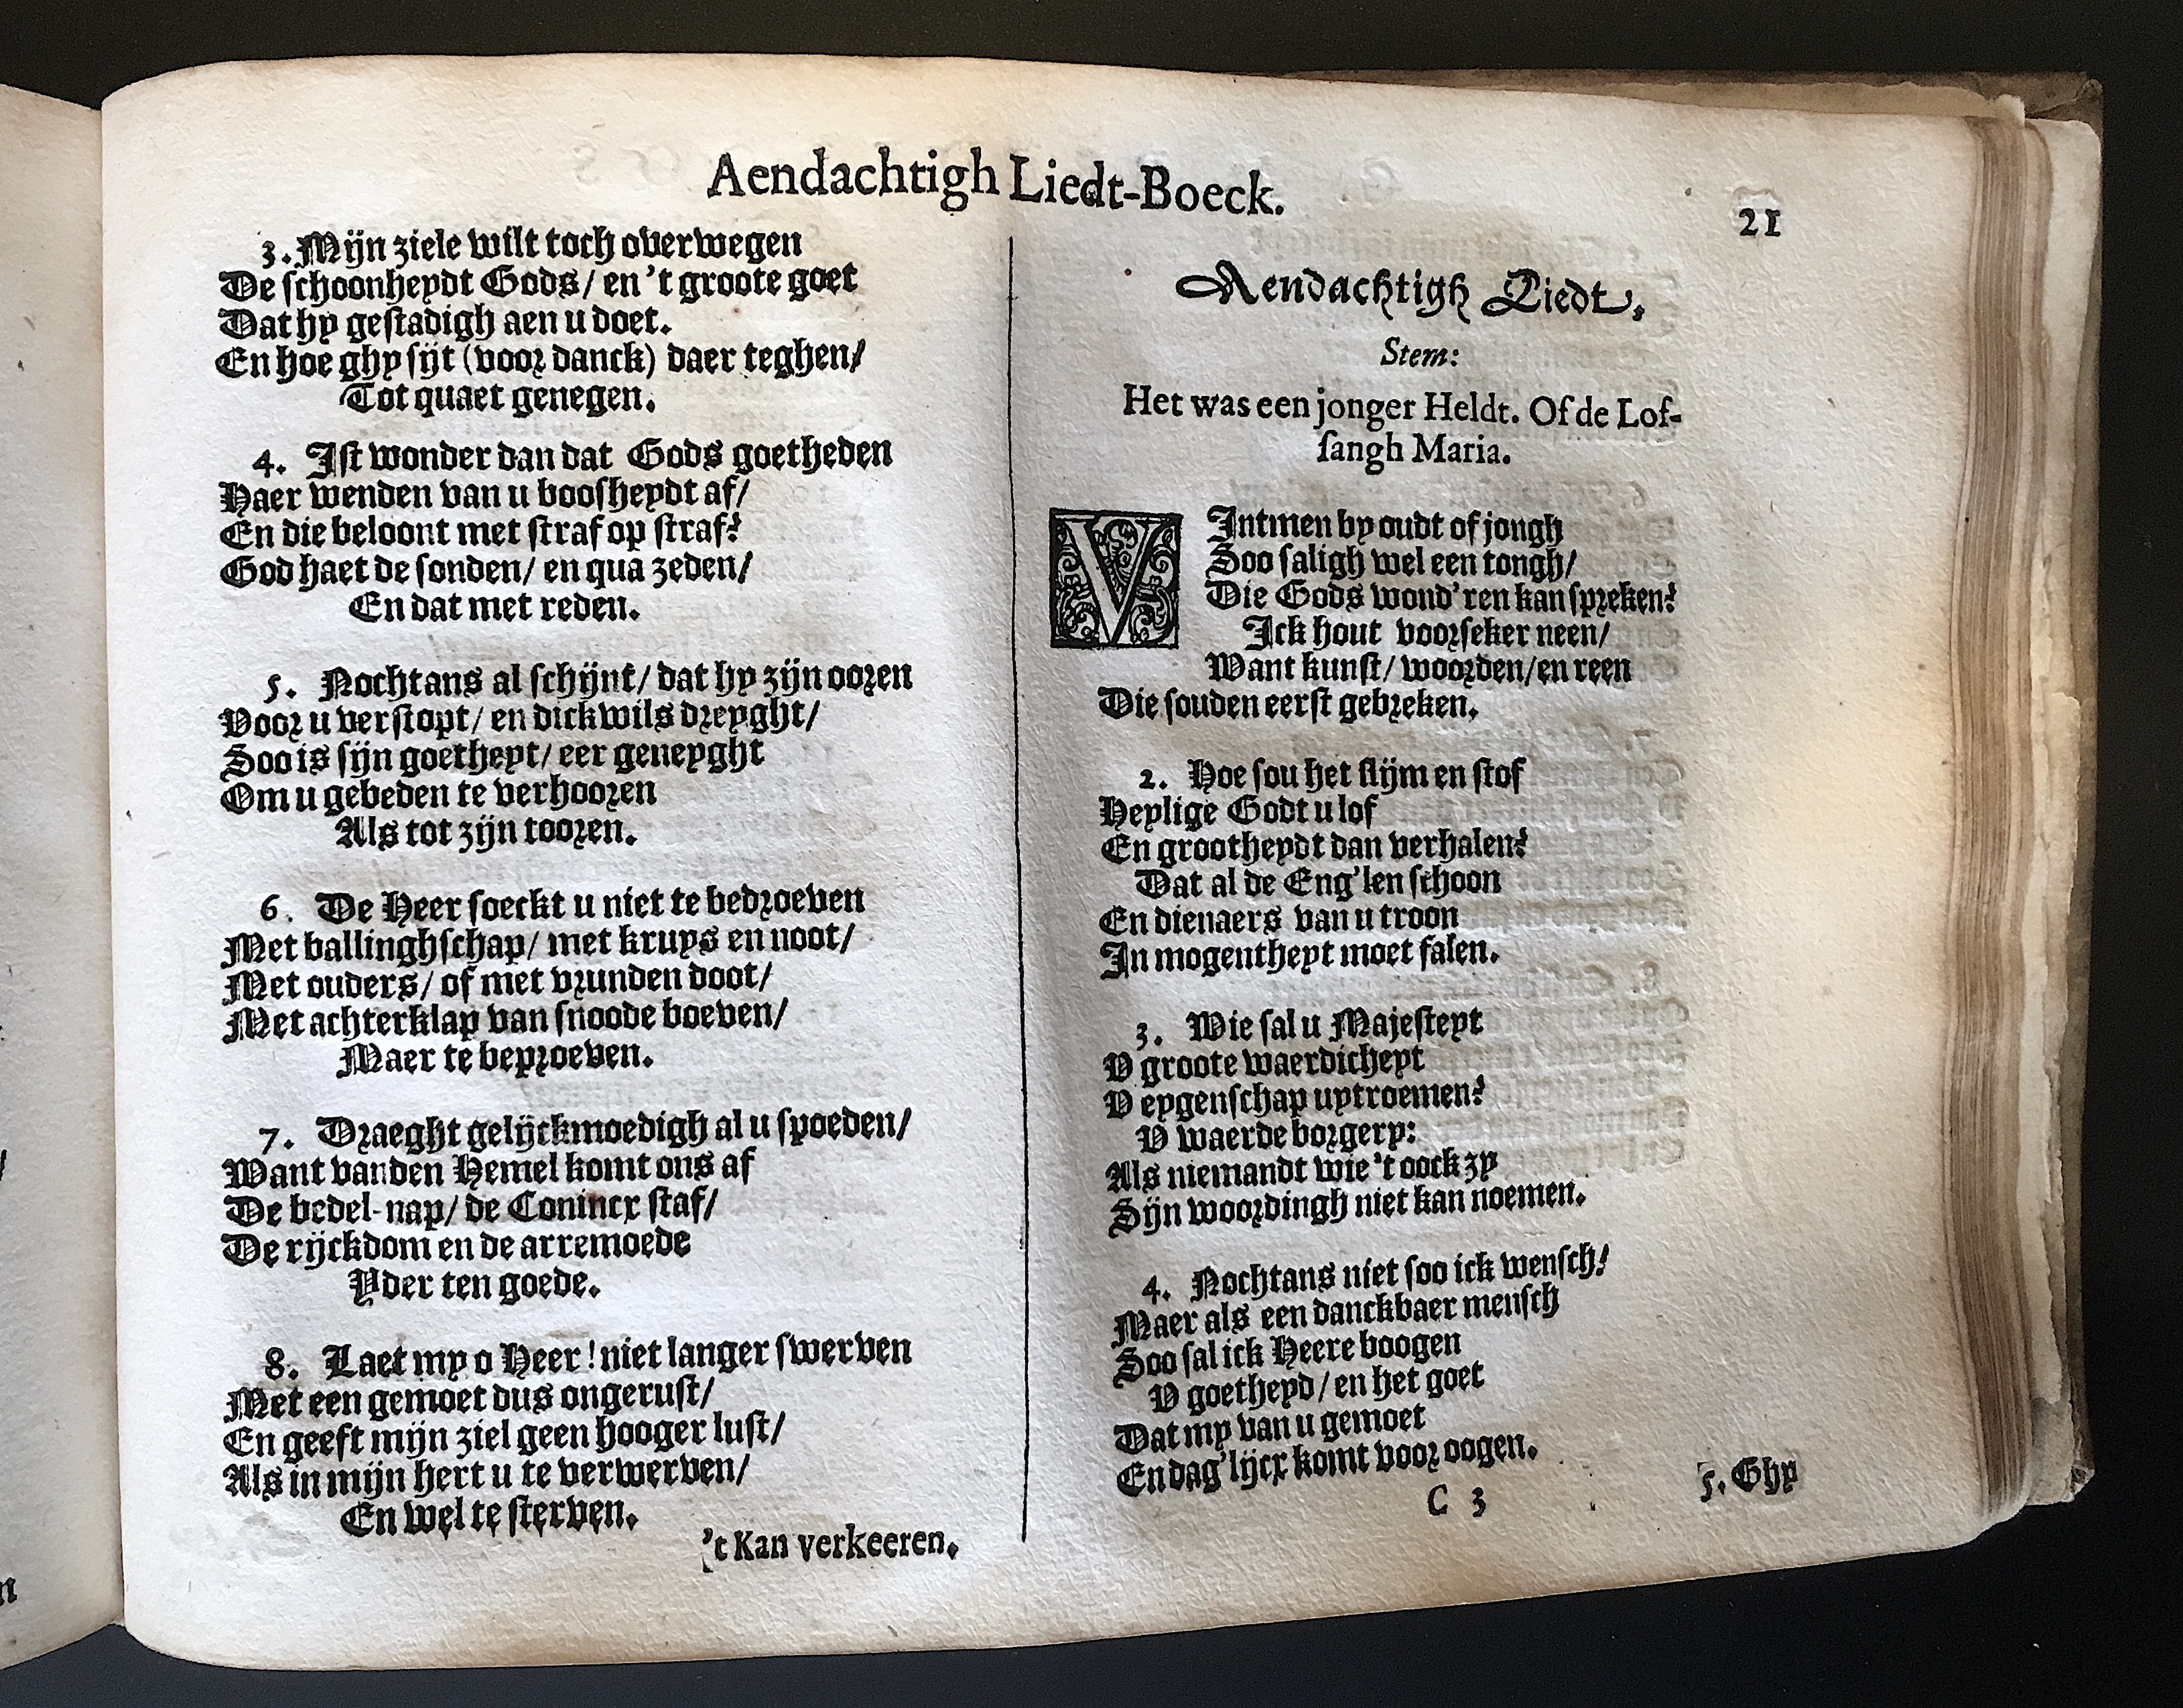 Aendachtigh Liedt-Boeck.
21
3. Mijn ziele wilt toch overwegen
De schoonheydt Gods/ en 't groote goet
Dat hy gestadigh aen u doet.
En hoe ghy sijt (voor danck) daer teghen/
Tot quaet genegen.
4. Ist wonder dan dat Gods goetheden
Haer wenden van u boosheydt af/
En die beloont met straf op straf?
God haet de sonden/ en qua zeden/
En dat met reden.
5. Nochtans al schijnt/ dat hy zijn ooren
Voor u verstopt/ en dickwils dreyght/
Soo is sijn goetheyt/ eer geneyght
Om u gebeden te verhooren
Als tot zijn tooren.
6. De Heer soeckt u niet te bedroeven
Met ballinghschap/ met kruys en noot/
Met ouders/ of met vrunden doot/
Met achterklap van snoode boeven/
Maer te beproeven.
7. Draeght gelijckmoedigh al u spoeden/
Want vanden Hemel komt ons af
De bedel-nap/ de Conincx staf/
De rijckdom en de arremoede
Yder ten goede.
8. Laet my o Heer! niet langer swerven
Met een gemoet dus ongerust/
En geeft mijn ziel geen hooger lust/
Als in mijn hert u te verwerven/
En wel te sterven.
't Kan verkeeren.
Aendachtigh Liedt.
Stem:
Het was een jonger Heldt. Of de Lof-
sangh Maria.
VIntmen by oudt of jongh
Soo saligh wel een tongh/
Die Gods wond'ren kan spreken?
Ick hout voorseker neen/
Want kunst/ woorden/ en reen
Die souden eerst gebreken.
2. Hoe sou het slijm en stof
Heylige Godt u lof
En grootheydt dan verhalen?
Dat al de Eng'len schoon
En dienaers van u troon
In mogentheyt moet falen.
3. Wie sal u Majesteyt
V groote waerdicheyt
V eygenschap uytroemen?
V waerde borgery:
Als niemandt wie 't oock zy
Sijn woordingh niet kan noemen.
4. Nochtans niet soo ick wensch!
Maer als een danckbaer mensch
Soo sal ick Heere boogen
V goetheyd/ en het goet
Dat my van u gemoet
En dag'lijcx komt voor oogen.
C 3
5. Ghy